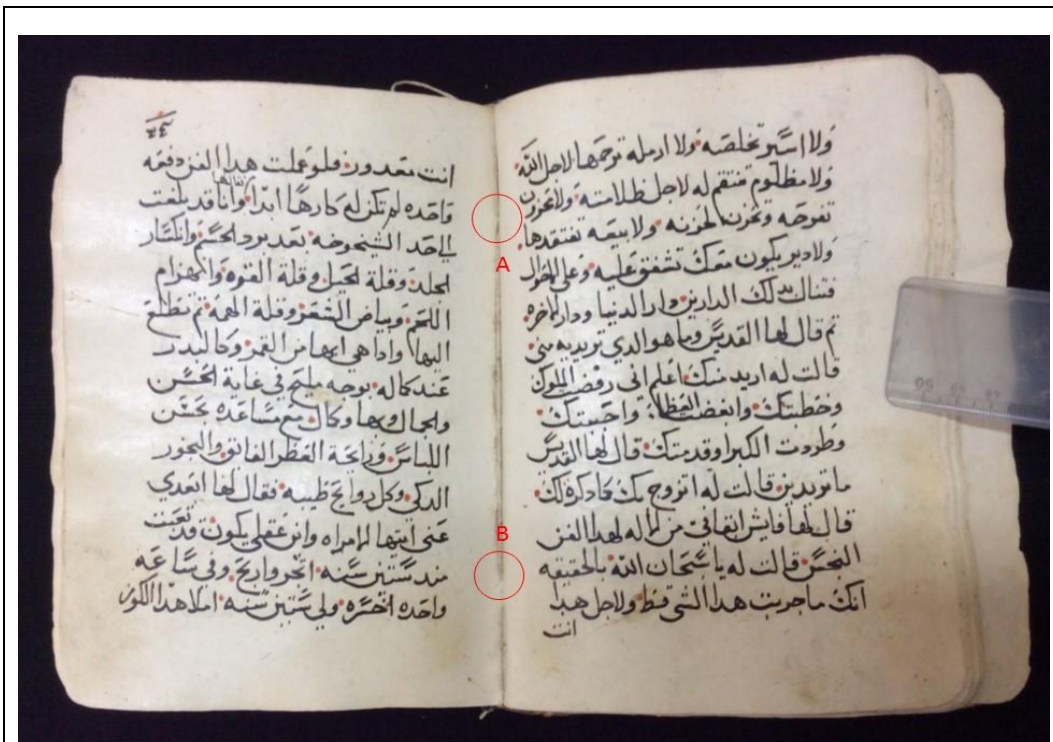 ولا اسير تخلصه ولا ارمله ترحمها لاجل الله
ولا مظلوم تنتقم له لاجل ظلامته ولا محزون
تفرحه وتحزن لحزنه ولا بيعه تفتقدها
ولا دير يكون معك تشفق عليه وعلى
بدلك الدارين دار الدنيا ودار الاخره
تم قال لها القديس وما هو الدي تريديه مني
قالت له اريد منك اعلم اني رفضت الملوك
وخطبتك وابغضت العظما واحببتك
وطردت الكبرا وقدمتك قال لها القديس
ما تريدين قالت له اتزوج بك كما دكرة لك
قال لها فايش ابغاني من لهدا الفن
النجس قالت له يا سبحان الله بالحقيقه
انك ما جربت هدا الشي قط ولاجل هدا
انت
٣٤
انت معدور فلو عملت هدا الفن دفعه
واحده لم تكن له كارها ابدا وانا قد بلغت
الي حد الشيخوخه بعد برد الجسم وانكسار
الجلد وقلة الحيل وقلة القوه وانهزام
اللحم وبياض الشعر وقلة الهمه تم تطلع
اليها وادا هي ابها من القمر وكالبدر
عند كماله بوجه مليح في غاية الحسن
والجمال والبها وكان مع مساعده بحسن
اللباس ورايحة العطر الفايق والبخور
الدكي وكل روايح طيبه فقال لها ابعدي
عني ايتها الامراه واين عقلي يكون وقد تعبت
مند ستين سنه اتجر واربح وفي ساعه
واحده اخسره ولي ستين سنه املا هدا الكوز
A
B